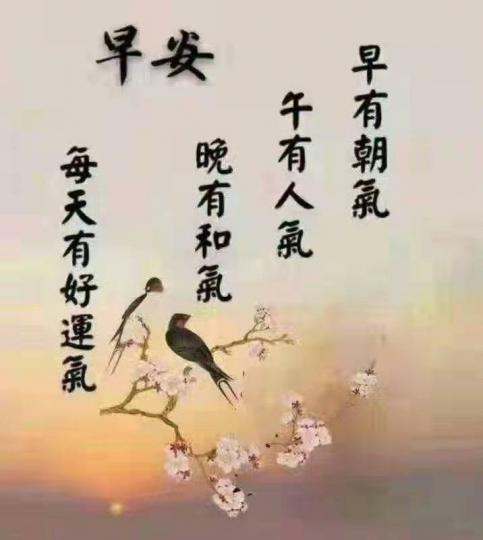 早安
早有朝氣
午有人氣
晚有和氣
每天有好運氣